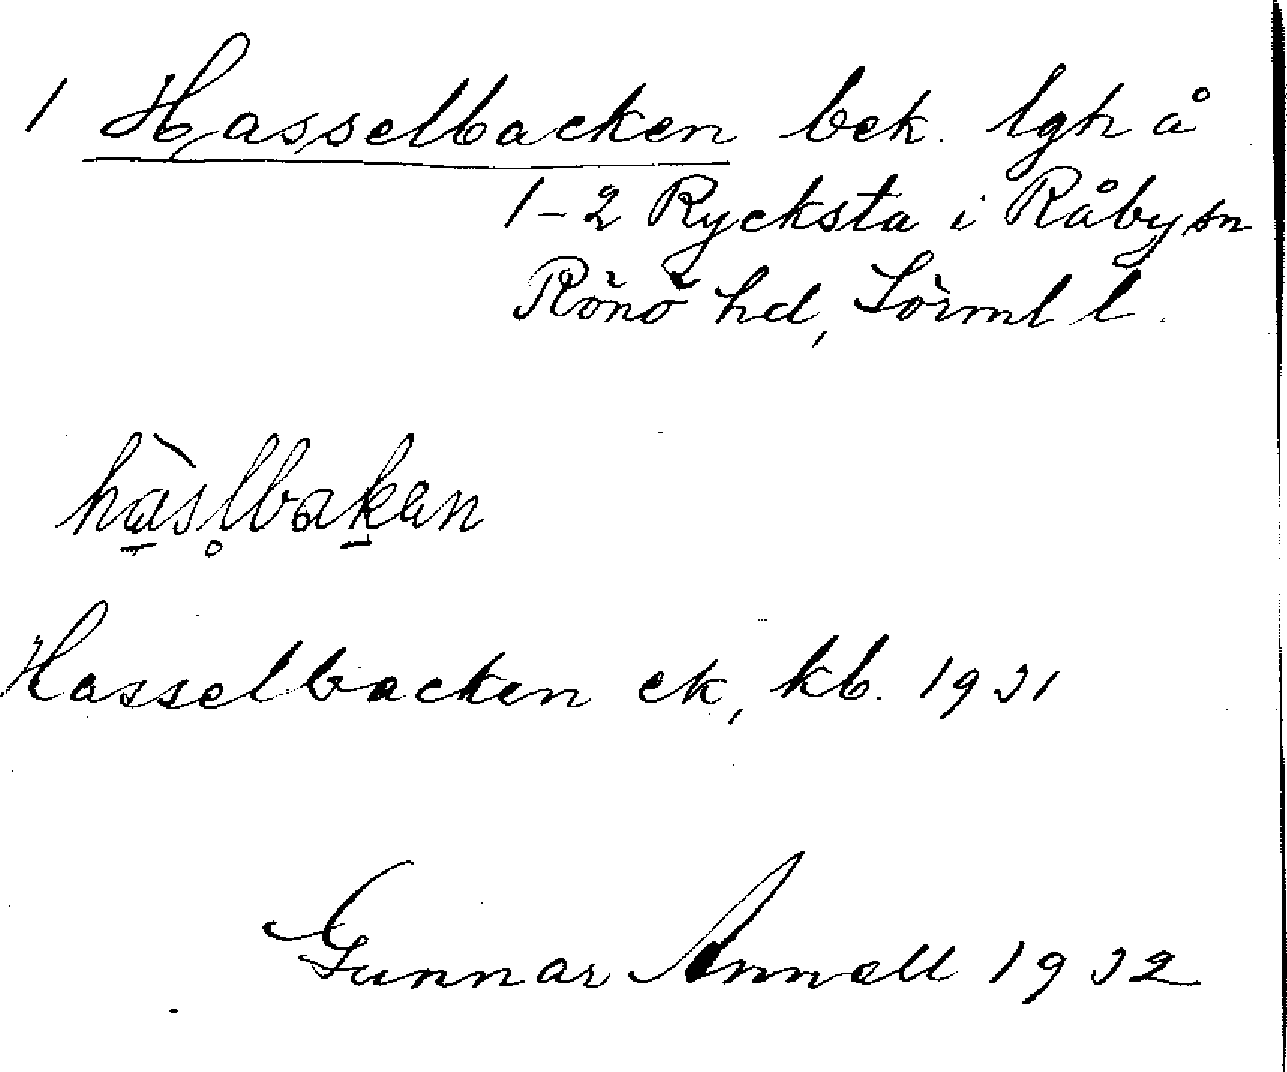 1 Hasselbacken bek. lgh å
1-2 Rycksta i Råby sn
Rönö hd, Sörml l.
hàsl̥bak̠an
Hasselbacken ek, kb. 1931
Gunnar Annell 1932